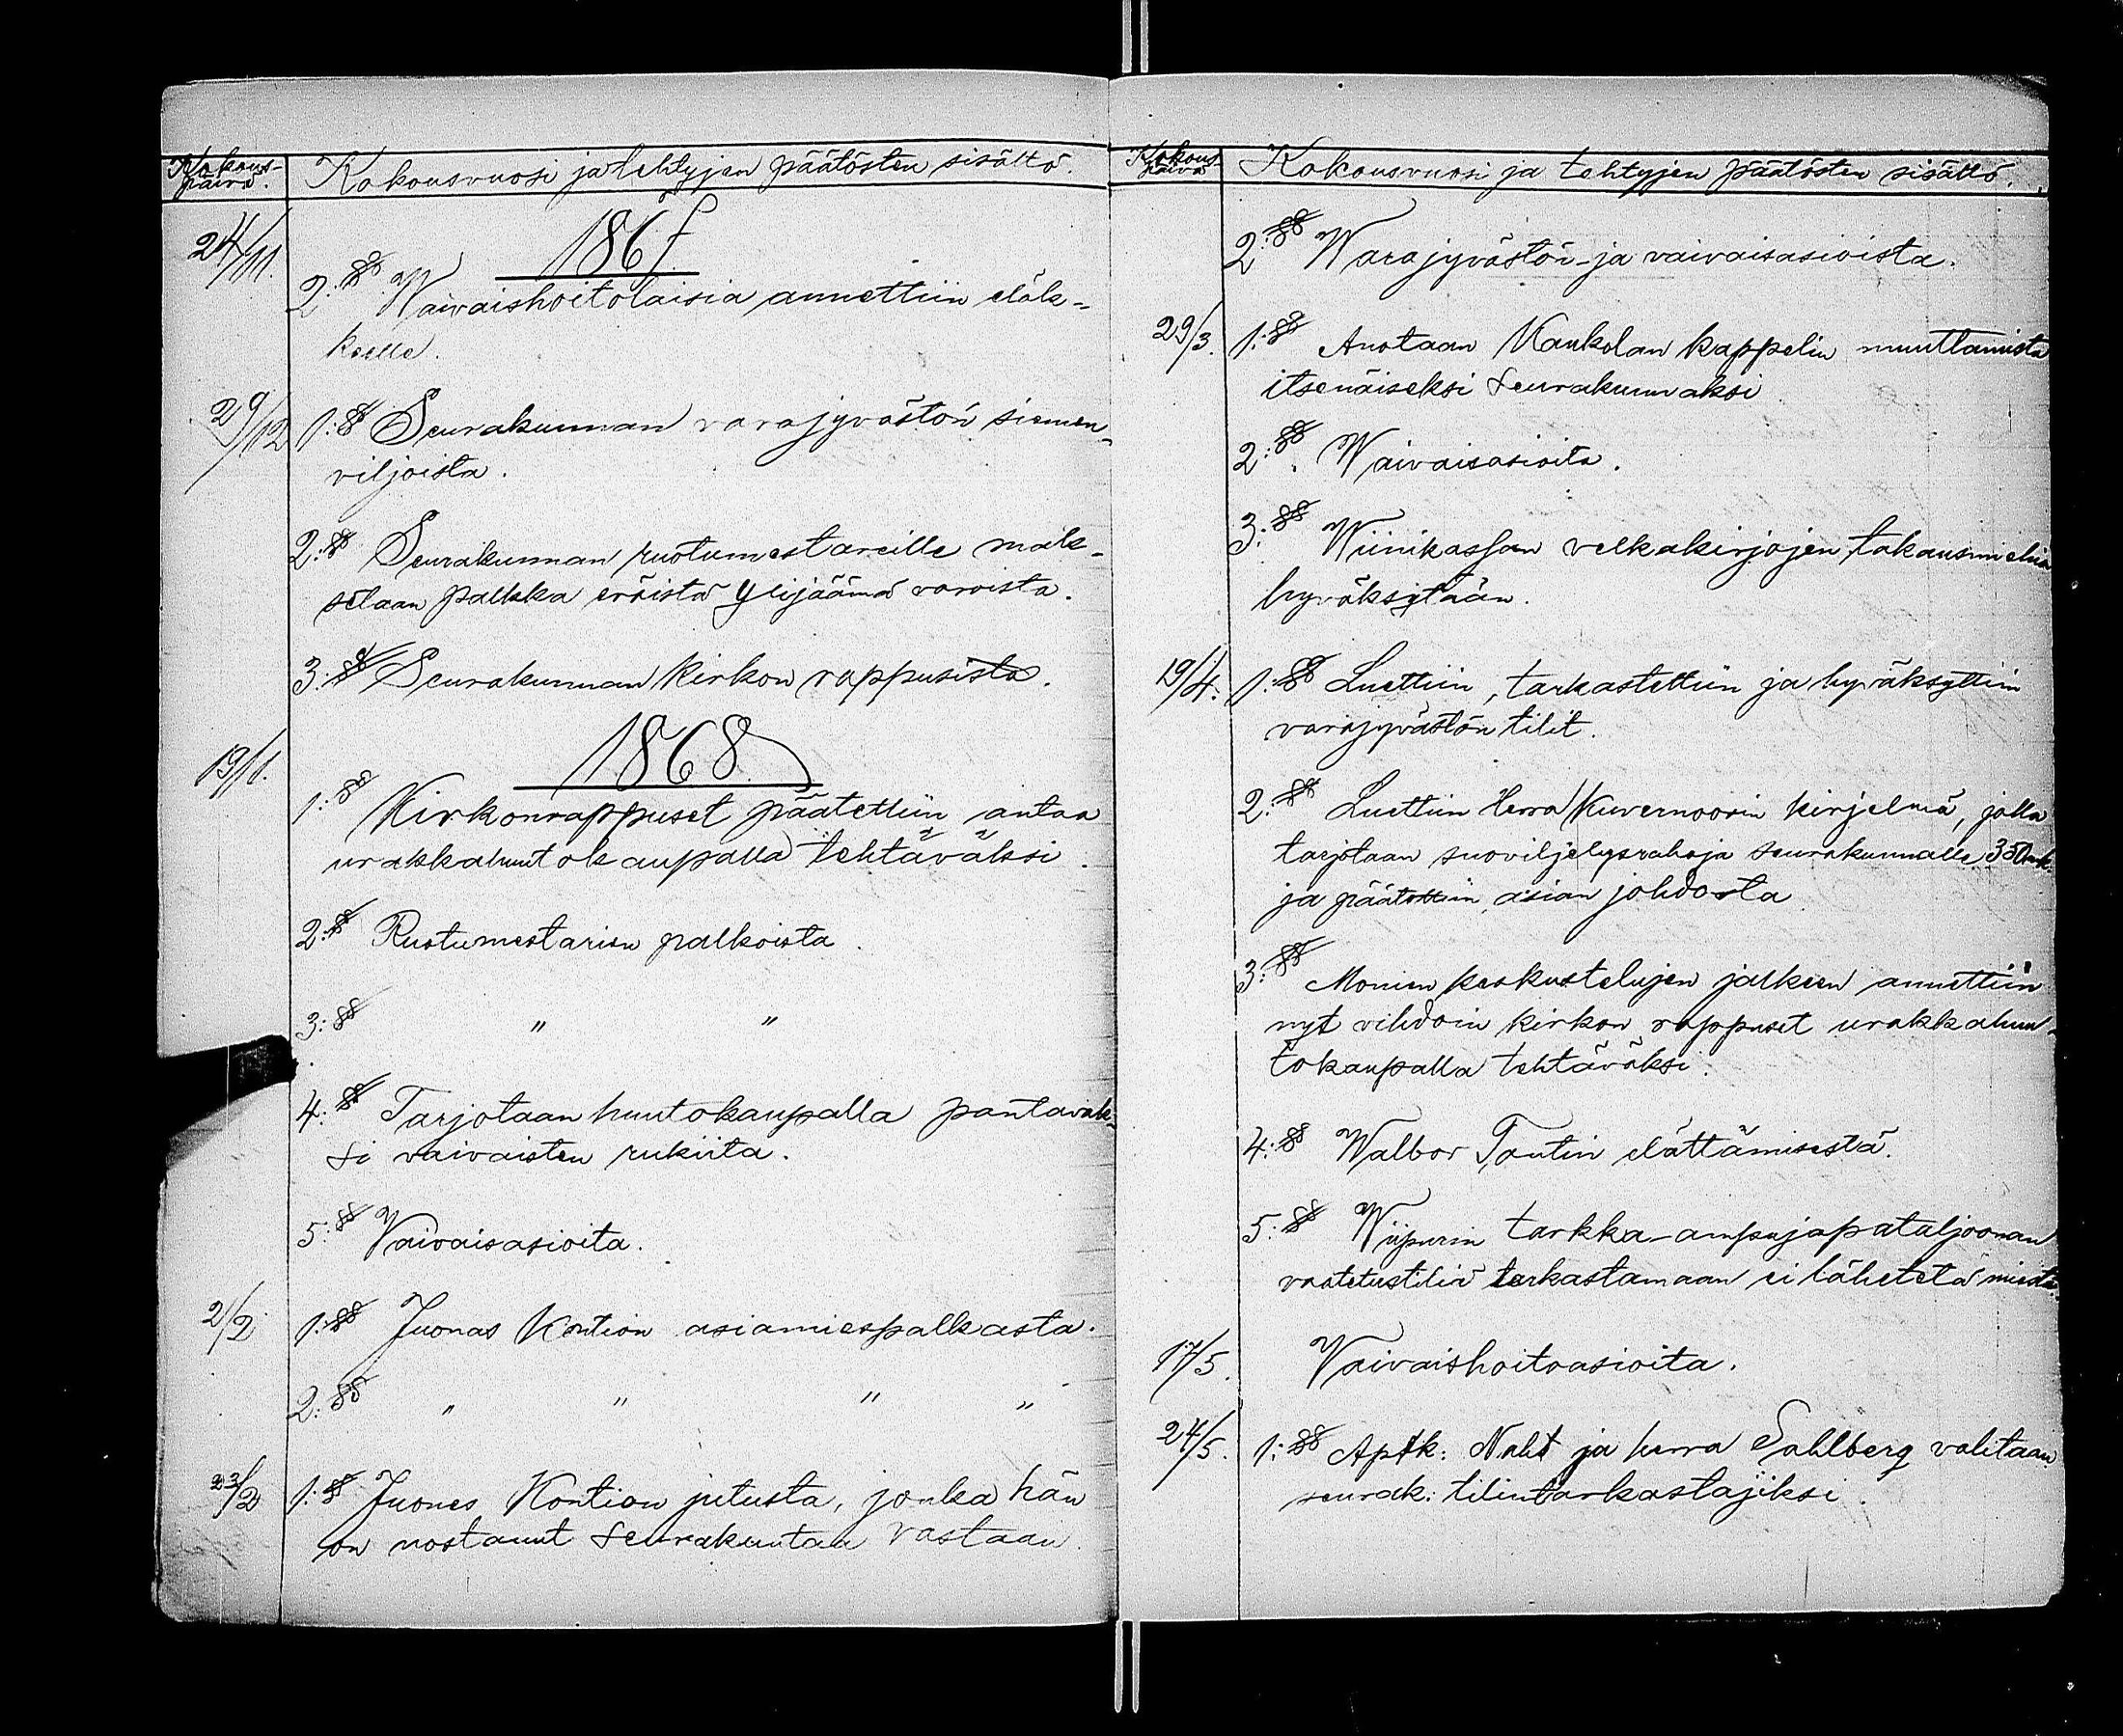 Kokous-
päivä.
Kokousvuosi ja tehtyjen päätösten sisältö.
24/11.
1867
2:§ Waivaishoitolaisia annettiin eläk-
keelle.
29/12
1:§ Seurakunnan varajyvästön siemen-
viljoista.
2:§ Seurakunnan ruotumestareille mak-
setaan palkka eräistä ylijäämä varoista.
3:§ Seurakunnan kirkon rappusista.
1868
19/1.
1:§ Kirkonrappuset päätettiin antaa
urakkahuutokaupalla tehtäväksi.
2:§ Ruotumestarien palkoista.
3:§ " "
4:§ Tarjotaan huutokaupalla pantavak-
si vaivaisten rukiita.
5:§ Vaivaisasioita.
2/2
1:§ Juonas Kontion asiamiespalkasta.
2:§ " " " "
23/2
1:§ Juones Kontion jutusta, jonka hän
on nostanut seurakuntaa vastaan.
Kokous-
päivä
Kokousvuosi ja tehtyjen päätösten sisältö.
2:§ Warajyvästön- ja vaivaisasioista.
29/3.
1:§ Anotaan Kaukolan kappelin muuttamista
itsenäiseksi seurakunnaksi
2:§. Waivaisasioita.
3:§ Wiinikassan velkakirjojen takausmiehiä
hyväksytään.
19/4.
1:§ Luettiin, tarkastettiin ja hyväksyttiin
varajyvästön tilit.
2:§ Luettiin Herra Kuvernöörin kirjelmä, jolla
tarjotaan suoviljelysrahoja seurakunnalle 350mk.
ja päätettiin asian johdosta
3:§ Monien keskustelujen jälkeen annettiin
nyt vihdoin kirkon rappuset urakkahuu-
tokaupalla tehtäväksi.
4:§ Walbor Tontin elättämisestä.
5:§ Wiipurin tarkka-ampujapataljoonan
vaatetustiliä tarkastamaan ei lähetetä miestä.
17/5.
Vaivaishoitoasioita.
24/5.
1:§ Aptk: ja herra Sahlberg valitaan
seurak: tilintarkastajiksi.